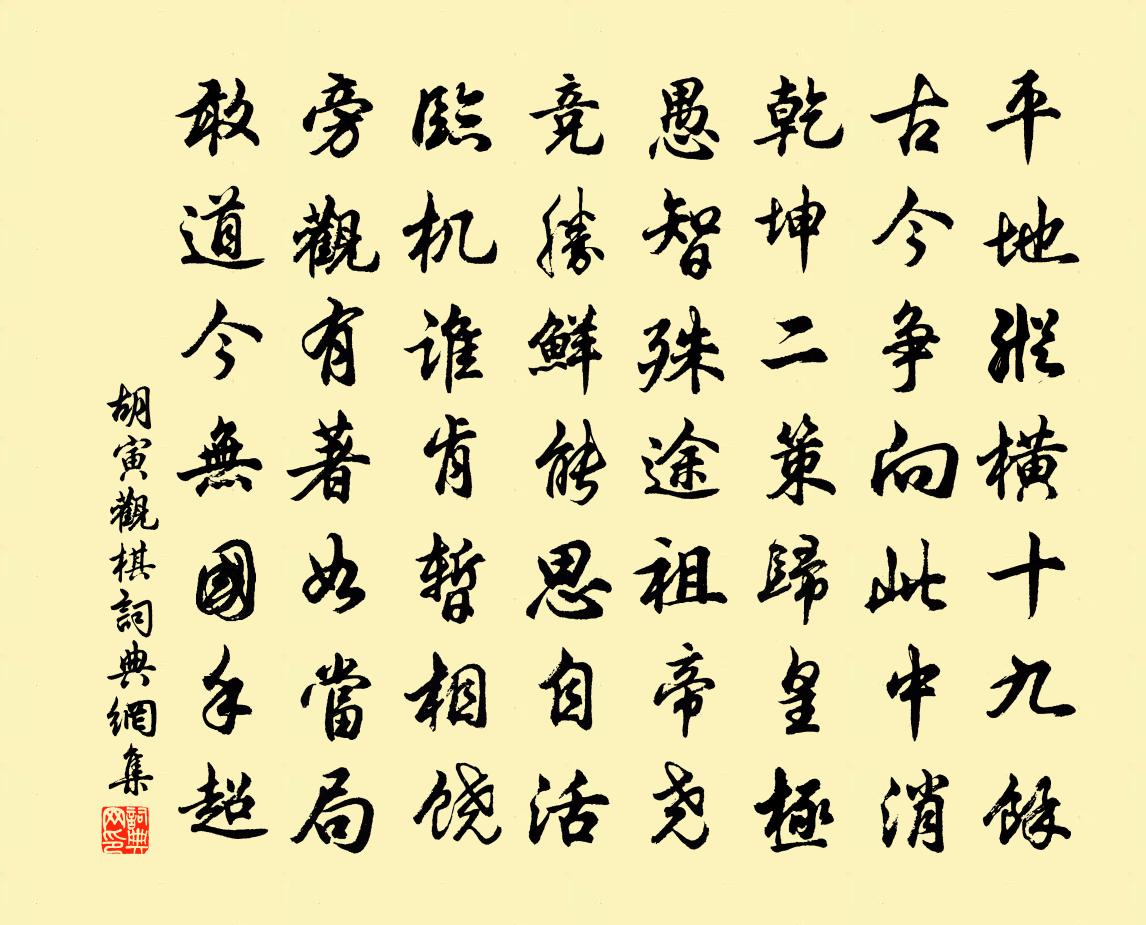 平地縱橫十九餘
古今争向此中消
乾坤二策歸皇極
愚智殊途祖帝尧
竞勝鮮能思自活
臨机誰肯暫相饶
旁觀有著如當局
敢道今無國手超
胡寅觀棋詞典網集
詞典
网印